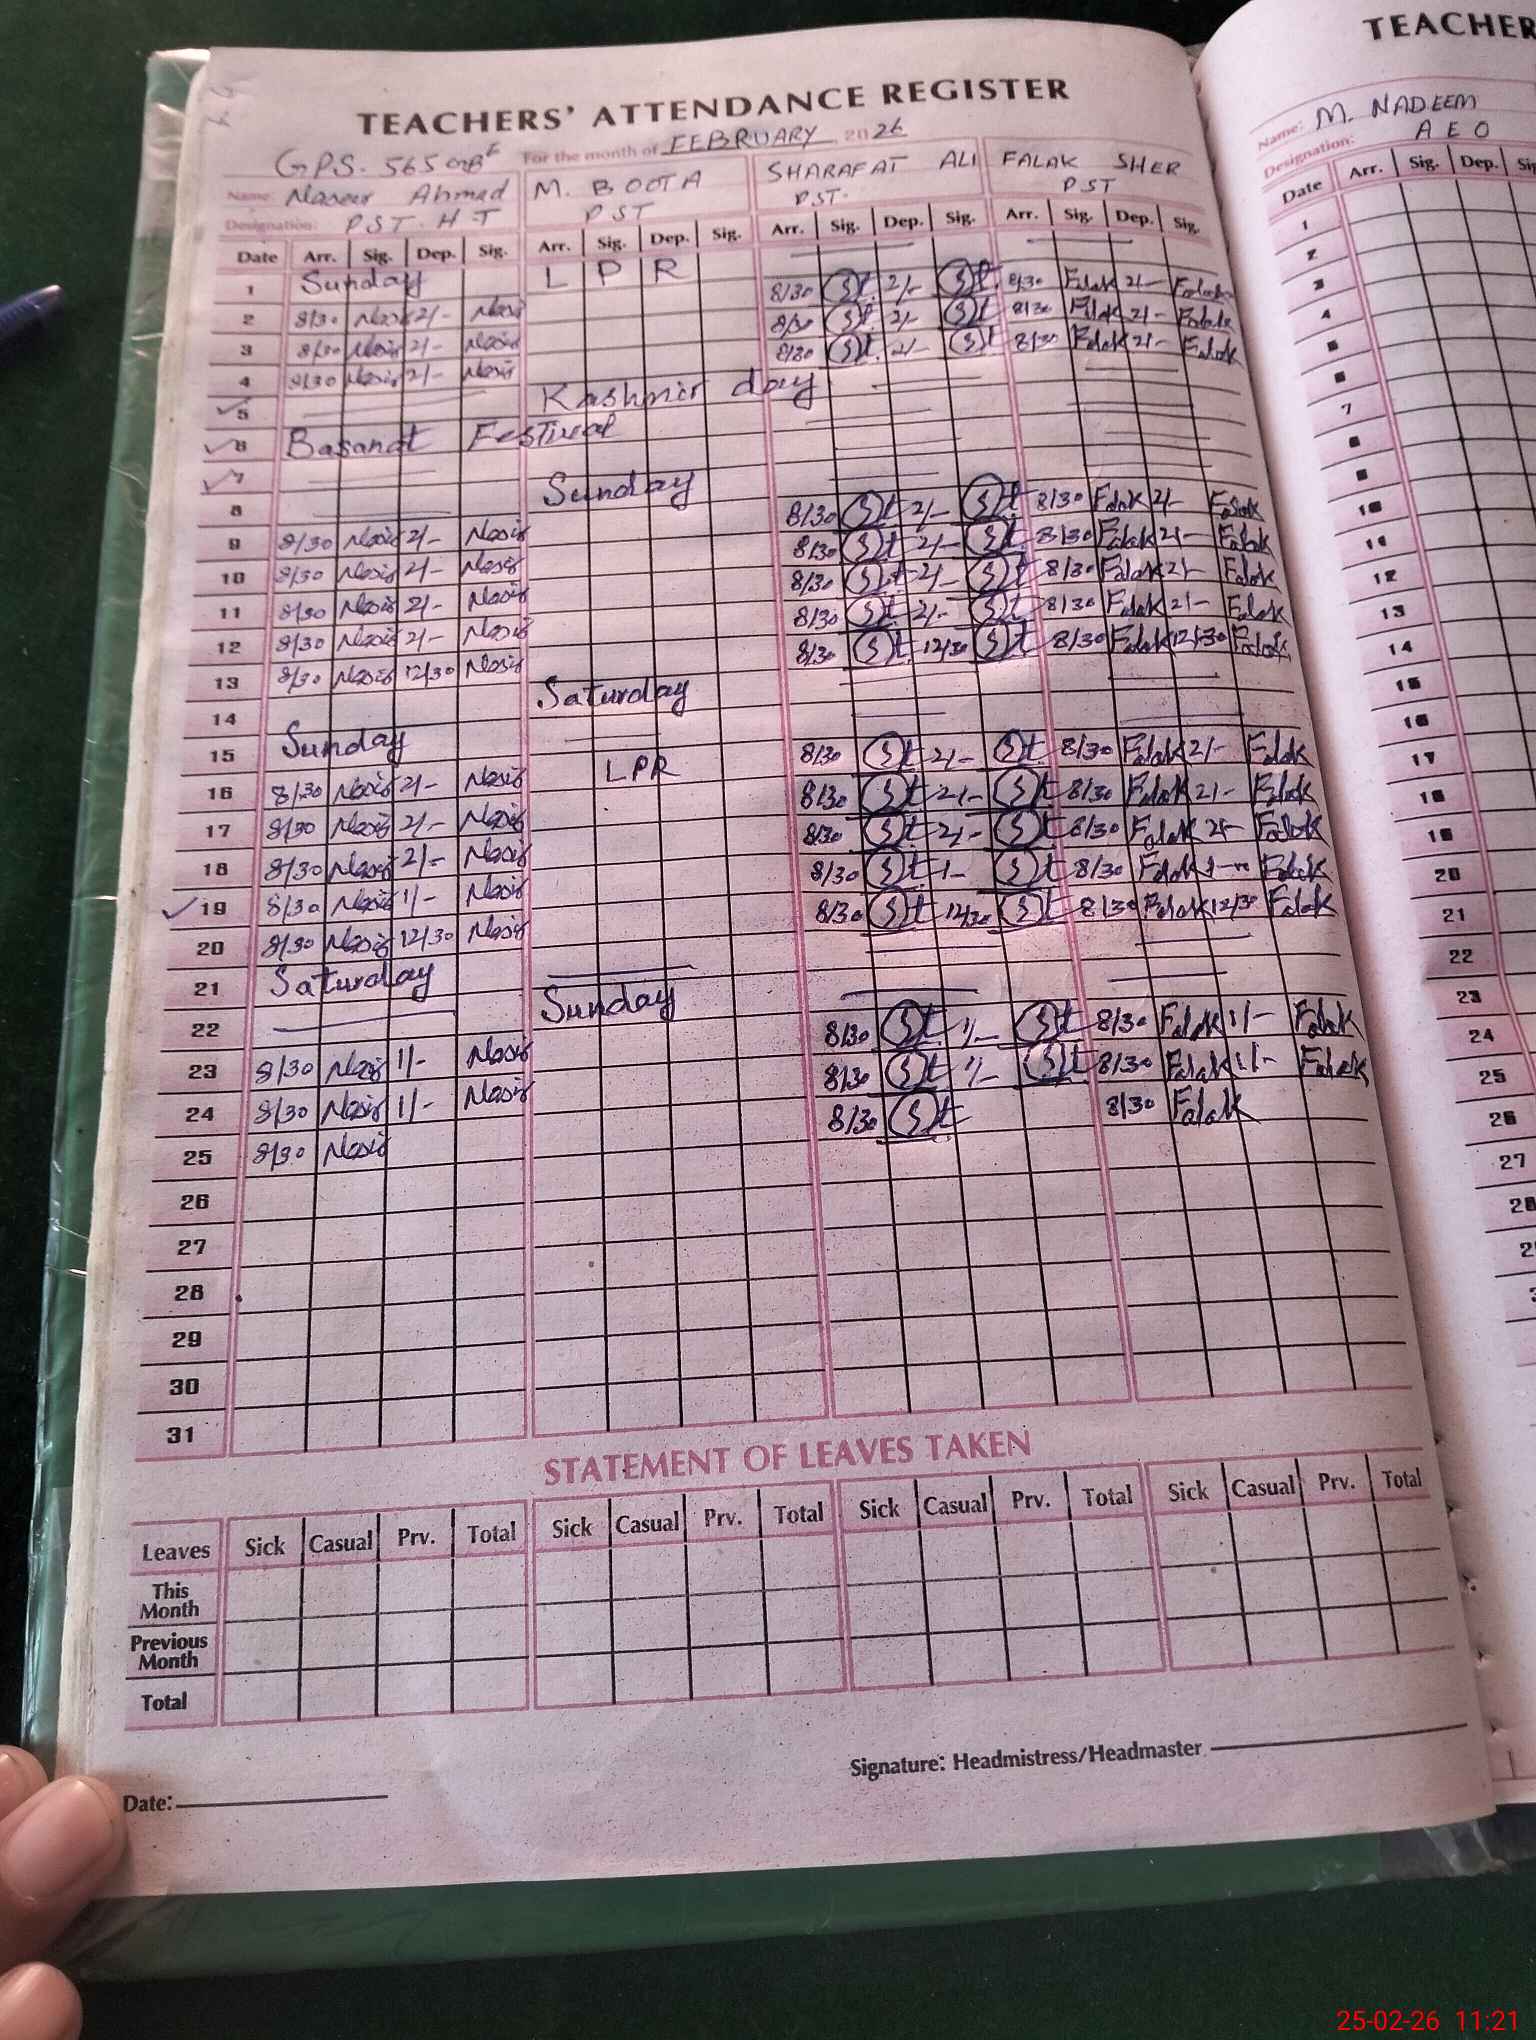 TEACHERS' ATTENDANCE REGISTER
For the month of FEBRUARY 2026
G.P.S. 565
Name: Naseer Ahmad M. BOOTA SHARAFAT ALI FALAK SHER
Designation: PST HT PST PST. PST
Date Arr. Sig. Dep. Sig. Arr. Sig. Dep. Sig. Arr. Sig. Dep. Sig. Arr. Sig. Dep. Sig.
1 Sunday L P R
2 8/30 Nasir 2/- Nasir 8/30 St 2/- St 8/30 Falak 2/- Falak
3 8/30 Nasir 2/- Nasir 8/30 St 2/- St 8/30 Falak 2/- Falak
4 8/30 Nasir 2/- Nasir 8/30 St 2/- St 8/30 Falak 2/- Falak
5 Kashmir day
6 Basanat Festival
7
8 Sunday
9 8/30 Nasir 2/- Nasir 8/30 St 2/- St 8/30 Falak 2/- Falak
10 8/30 Nasir 2/- Nasir 8/30 St 2/- St 8/30 Falak 2/- Falak
11 8/30 Nasir 2/- Nasir 8/30 St 2/- St 8/30 Falak 2/- Falak
12 8/30 Nasir 2/- Nasir 8/30 St 2/- St 8/30 Falak 2/- Falak
13 8/30 Nasir 12/30 Nasir 8/30 St 12/30 St 8/30 Falak 12/30 Falak
14 Saturday
15 Sunday
16 8/30 Nasir 2/- Nasir LPR 8/30 St 2/- St 8/30 Falak 2/- Falak
17 8/30 Nasir 2/- Nasir 8/30 St 2/- St 8/30 Falak 2/- Falak
18 8/30 Nasir 2/- Nasir 8/30 St 2/- St 8/30 Falak 2/- Falak
19 8/30 Nasir 1/- Nasir 8/30 St 1- St 8/30 Falak Falak
20 8/30 Nasir 12/30 Nasir 8/30 St 12/30 St 8/30 Falak 12/30 Falak
21 Saturday
22 Sunday
23 8/30 Nasir 1/- Nasir 8/30 St 1/- St 8/30 Falak 1/- Falak
24 8/30 Nasir 1/- Nasir 8/30 St 1/- St 8/30 Falak 1/- Falak
25 8/30 Nasir 8/30 St 8/30 Falak
26
27
28
29
30
31
STATEMENT OF LEAVES TAKEN
Leaves Sick Casual Prv. Total Sick Casual Prv. Total Sick Casual Prv. Total Sick Casual Prv. Total
This Month
Previous Month
Total
Signature: Headmistress/Headmaster
Date:
TEACHER
Name: M. NADEEM
Designation: A E O
Date Arr. Sig. Dep.
1
2
3
4
5
6
7
8
9
10
11
12
13
14
15
16
17
18
19
20
21
22
23
24
25
26
27
25-02-26 11:21